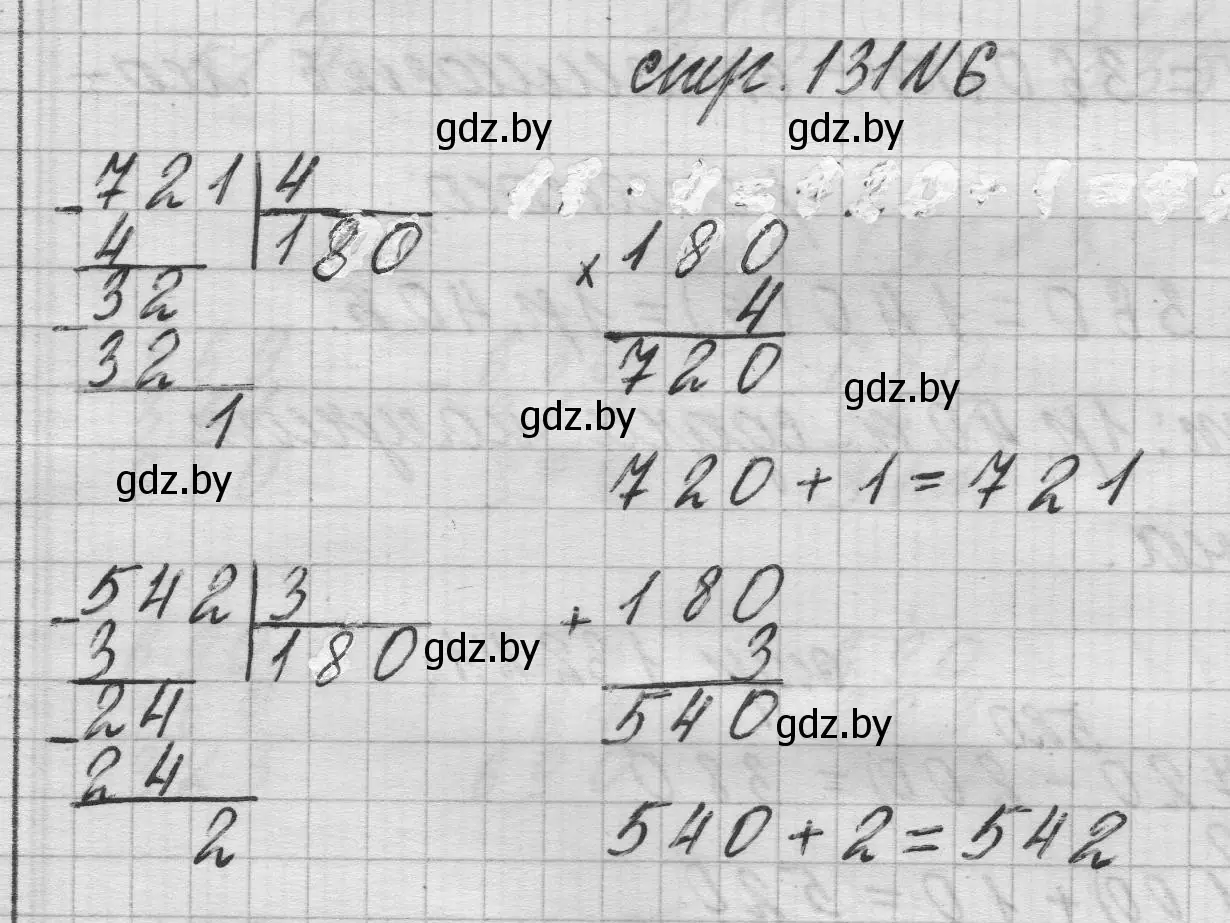 стр. 131 № 6
gdz.by gdz.by
- 721 | 4
4 | 180
- 32
32
1
× 180
4
720
gdz.by
gdz.by
gdz.by
720 + 1 = 721
- 542 | 3
3 | 180
gdz.by
- 24
24
2
+ 180
3
540
gdz.by
540 + 2 = 542